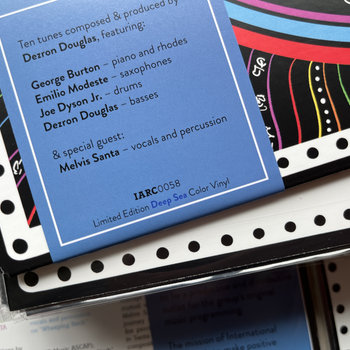 Ten tunes composed & produced by
Dezron Douglas, featuring:
George Burton – piano and rhodes
Emilio Modeste – saxophones
Joe Dyson Jr. – drums
Dezron Douglas – basses
& special guest:
Melvis Santa – vocals and percussion
IARC0058
Limited Edition Deep Sea Color Vinyl
The mission of International
make positive